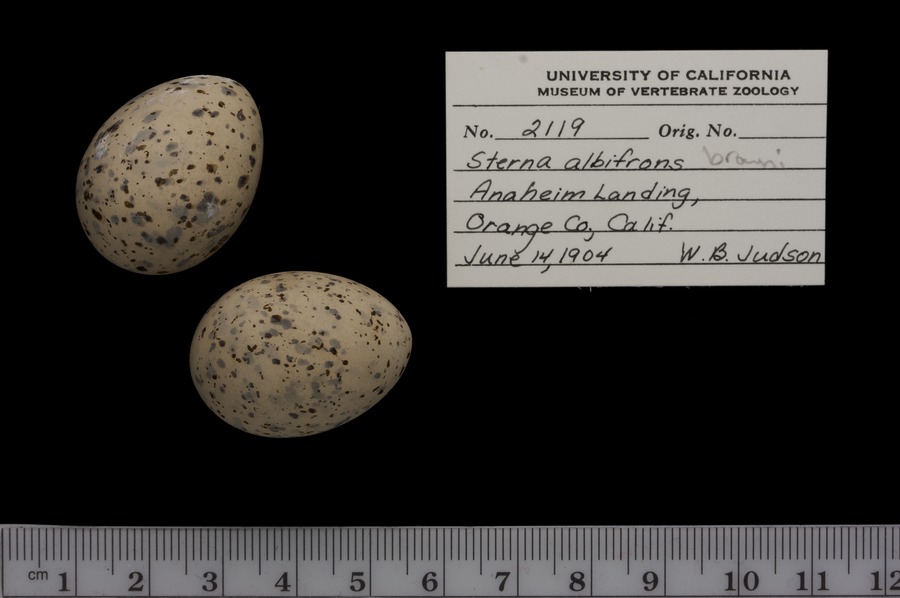 UNIVERSITY OF CALIFORNIA
MUSEUM OF VERTEBRATE ZOOLOGY
No. 2119 Orig. No.
Sterna albifrons browni
Anaheim Landing,
Orange Co, Calif.
June 14, 1904 W. B. Judson
cm 1 2 3 4 5 6 7 8 9 10 11 12